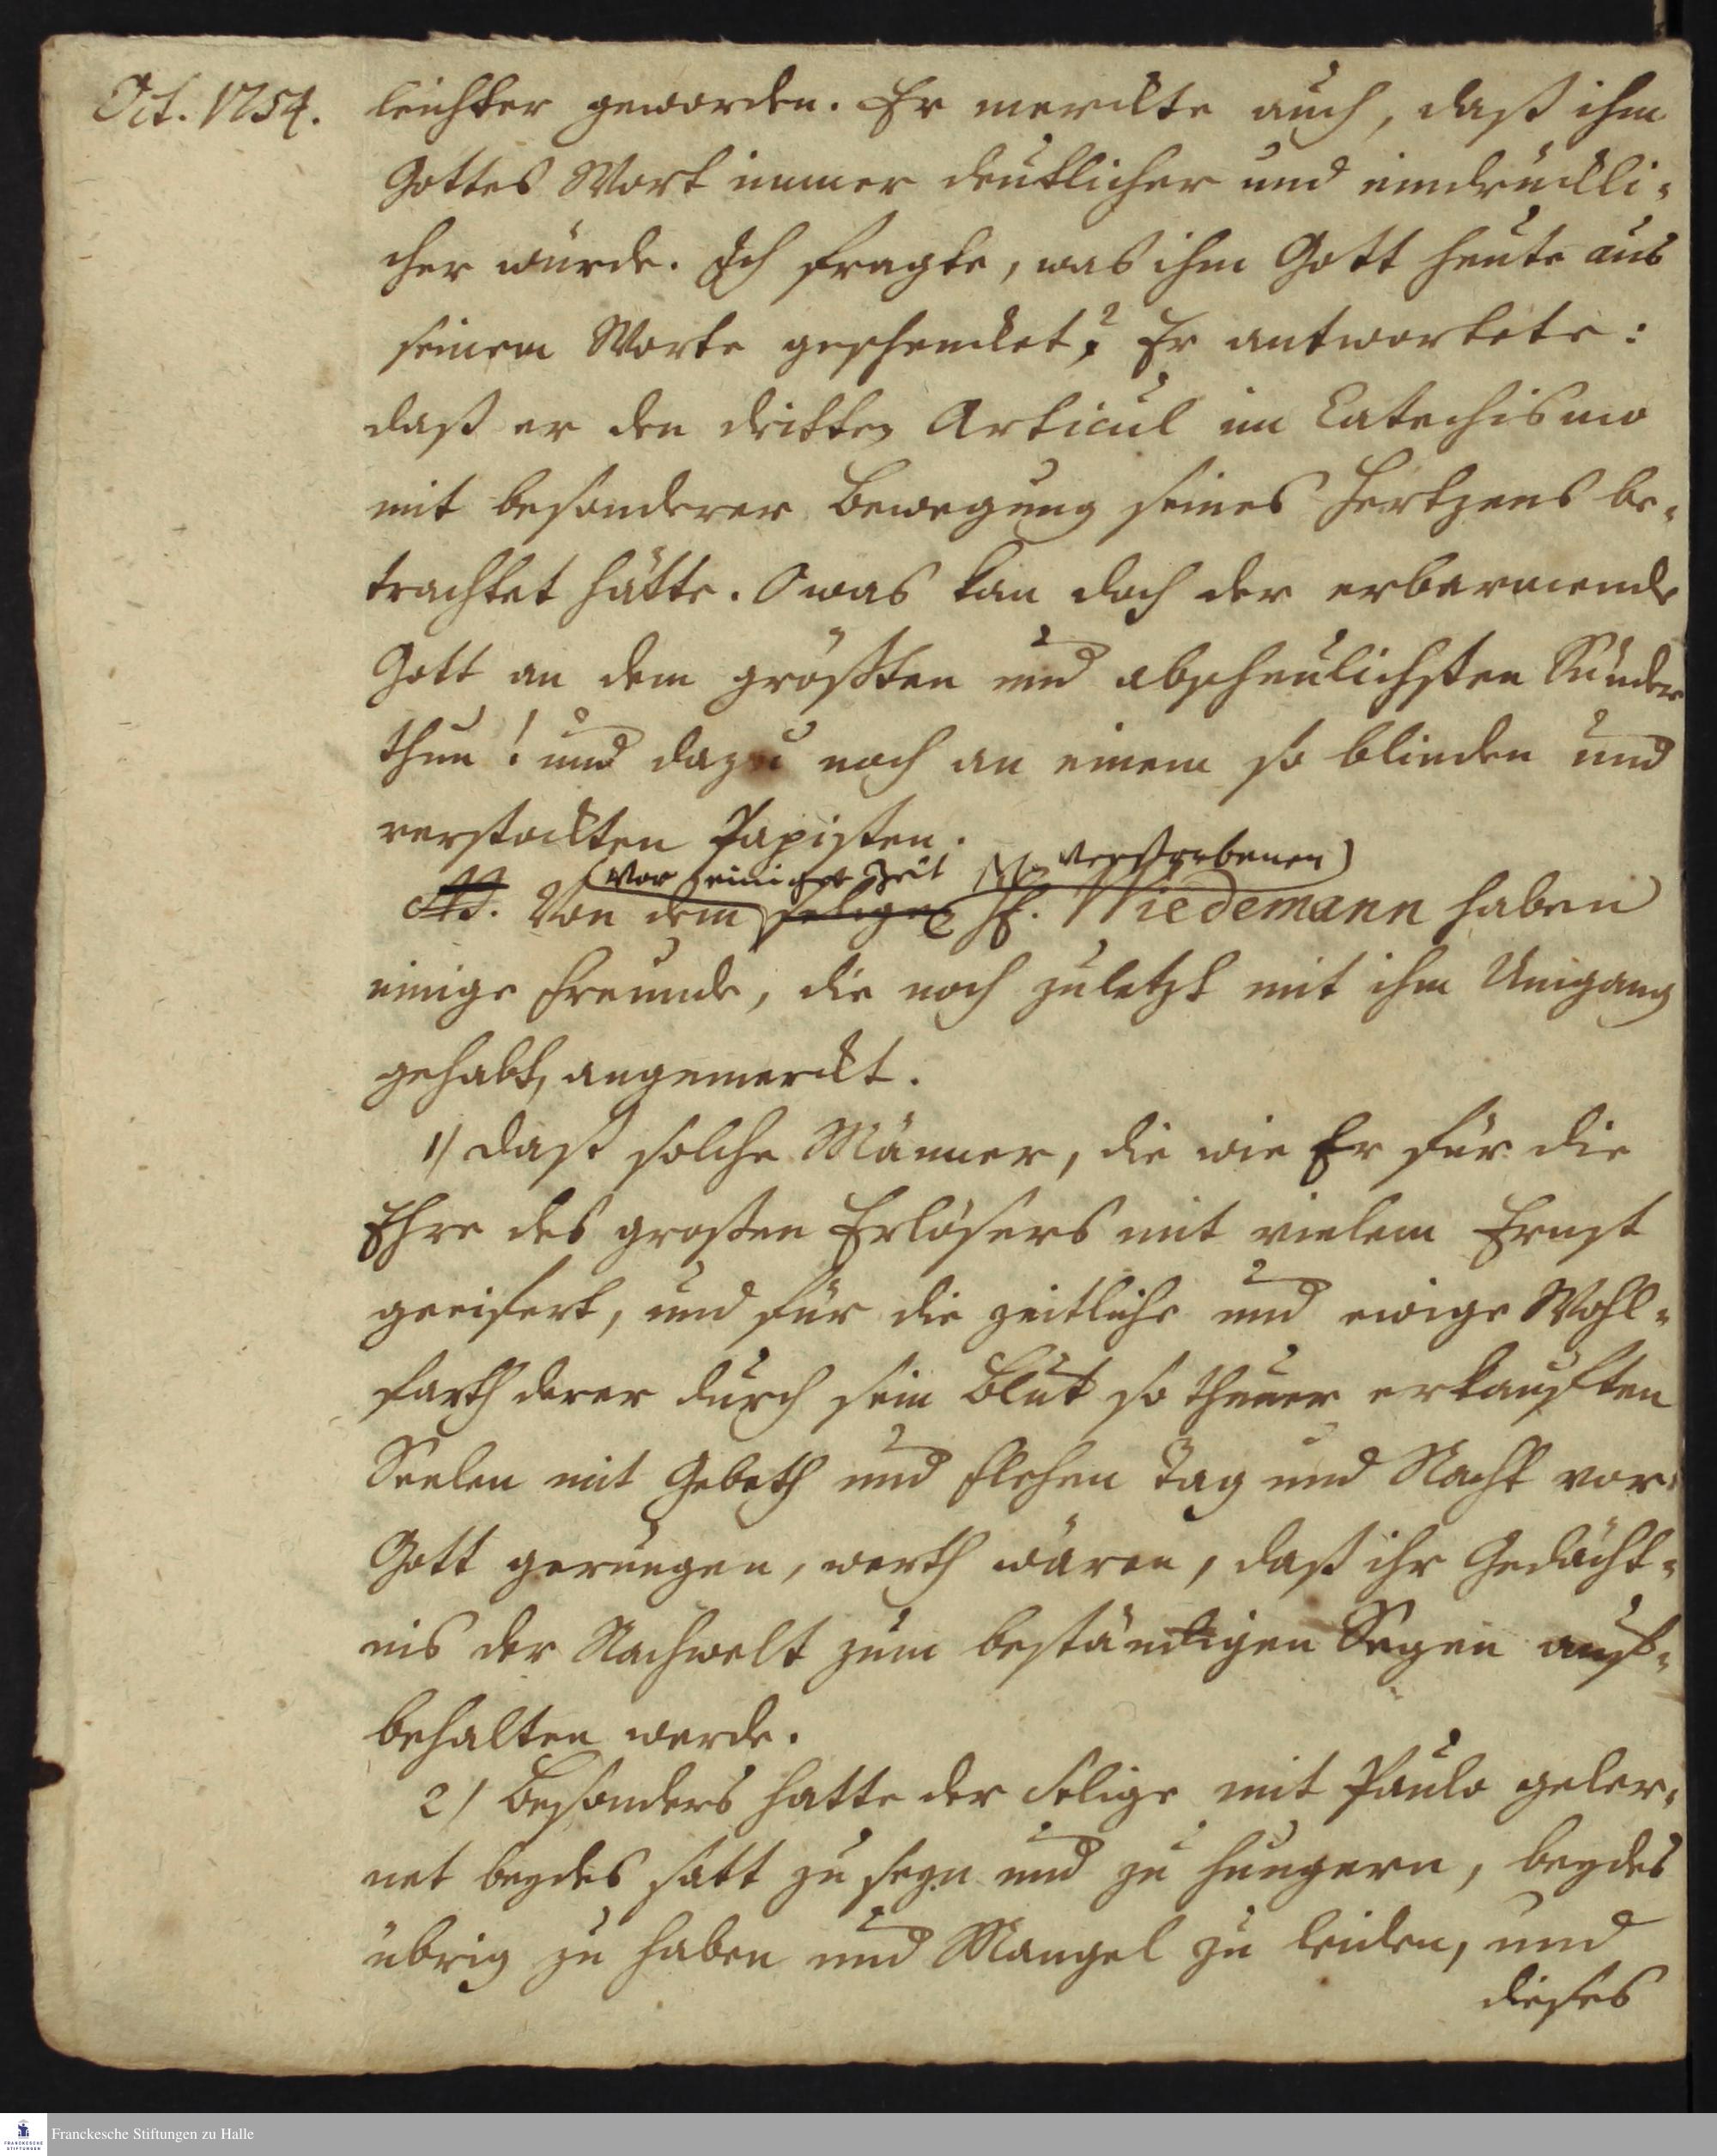 Oct. 1754.
leichter geworden. Er merckte auch, daß ihm
Gottes Wort immer deutlicher und eindrückli-
cher würde. Ich fragte, was ihm Gott heute aus
seinem Worte geschencket? Er antwortete:
daß er den dritten Articul im Catechismo
mit besonderer Bewegung seines Hertzens be-
trachtet hätte. O was kan doch der erbarmende
Gott an dem größten und abscheulichsten Sünder
thun! und dazu noch an einem so blinden und
verstockten Papisten.
vor einiger Zeit verstorbenen
NB. Von dem seligen H. Wiedemann haben
einige Freunde, die noch zuletzt mit ihm Umgang
gehabt, angemerckt.
1) daß solche Männer, die wie Er für die
Ehre des großen Erlösers mit vielem Ernst
geeifert, und für die zeitliche und ewige Wohl-
farth derer durch sein Blut so theuer erkauften
Seelen mit Gebeth und Flehen Tag und Nacht vor
Gott gerungen, werth wären, daß ihr Gedächt-
nis der Nachwelt zum beständigen Segen auf-
behalten werde.
2) Besonders hatte der Selige mit Paulo geler-
net beydes satt zu seyn und zu hungern, beydes
übrig zu haben und Mangel zu leiden, und
dieses
Franckesche Stiftungen zu Halle
FRANCKESCHE
STIFTUNGEN